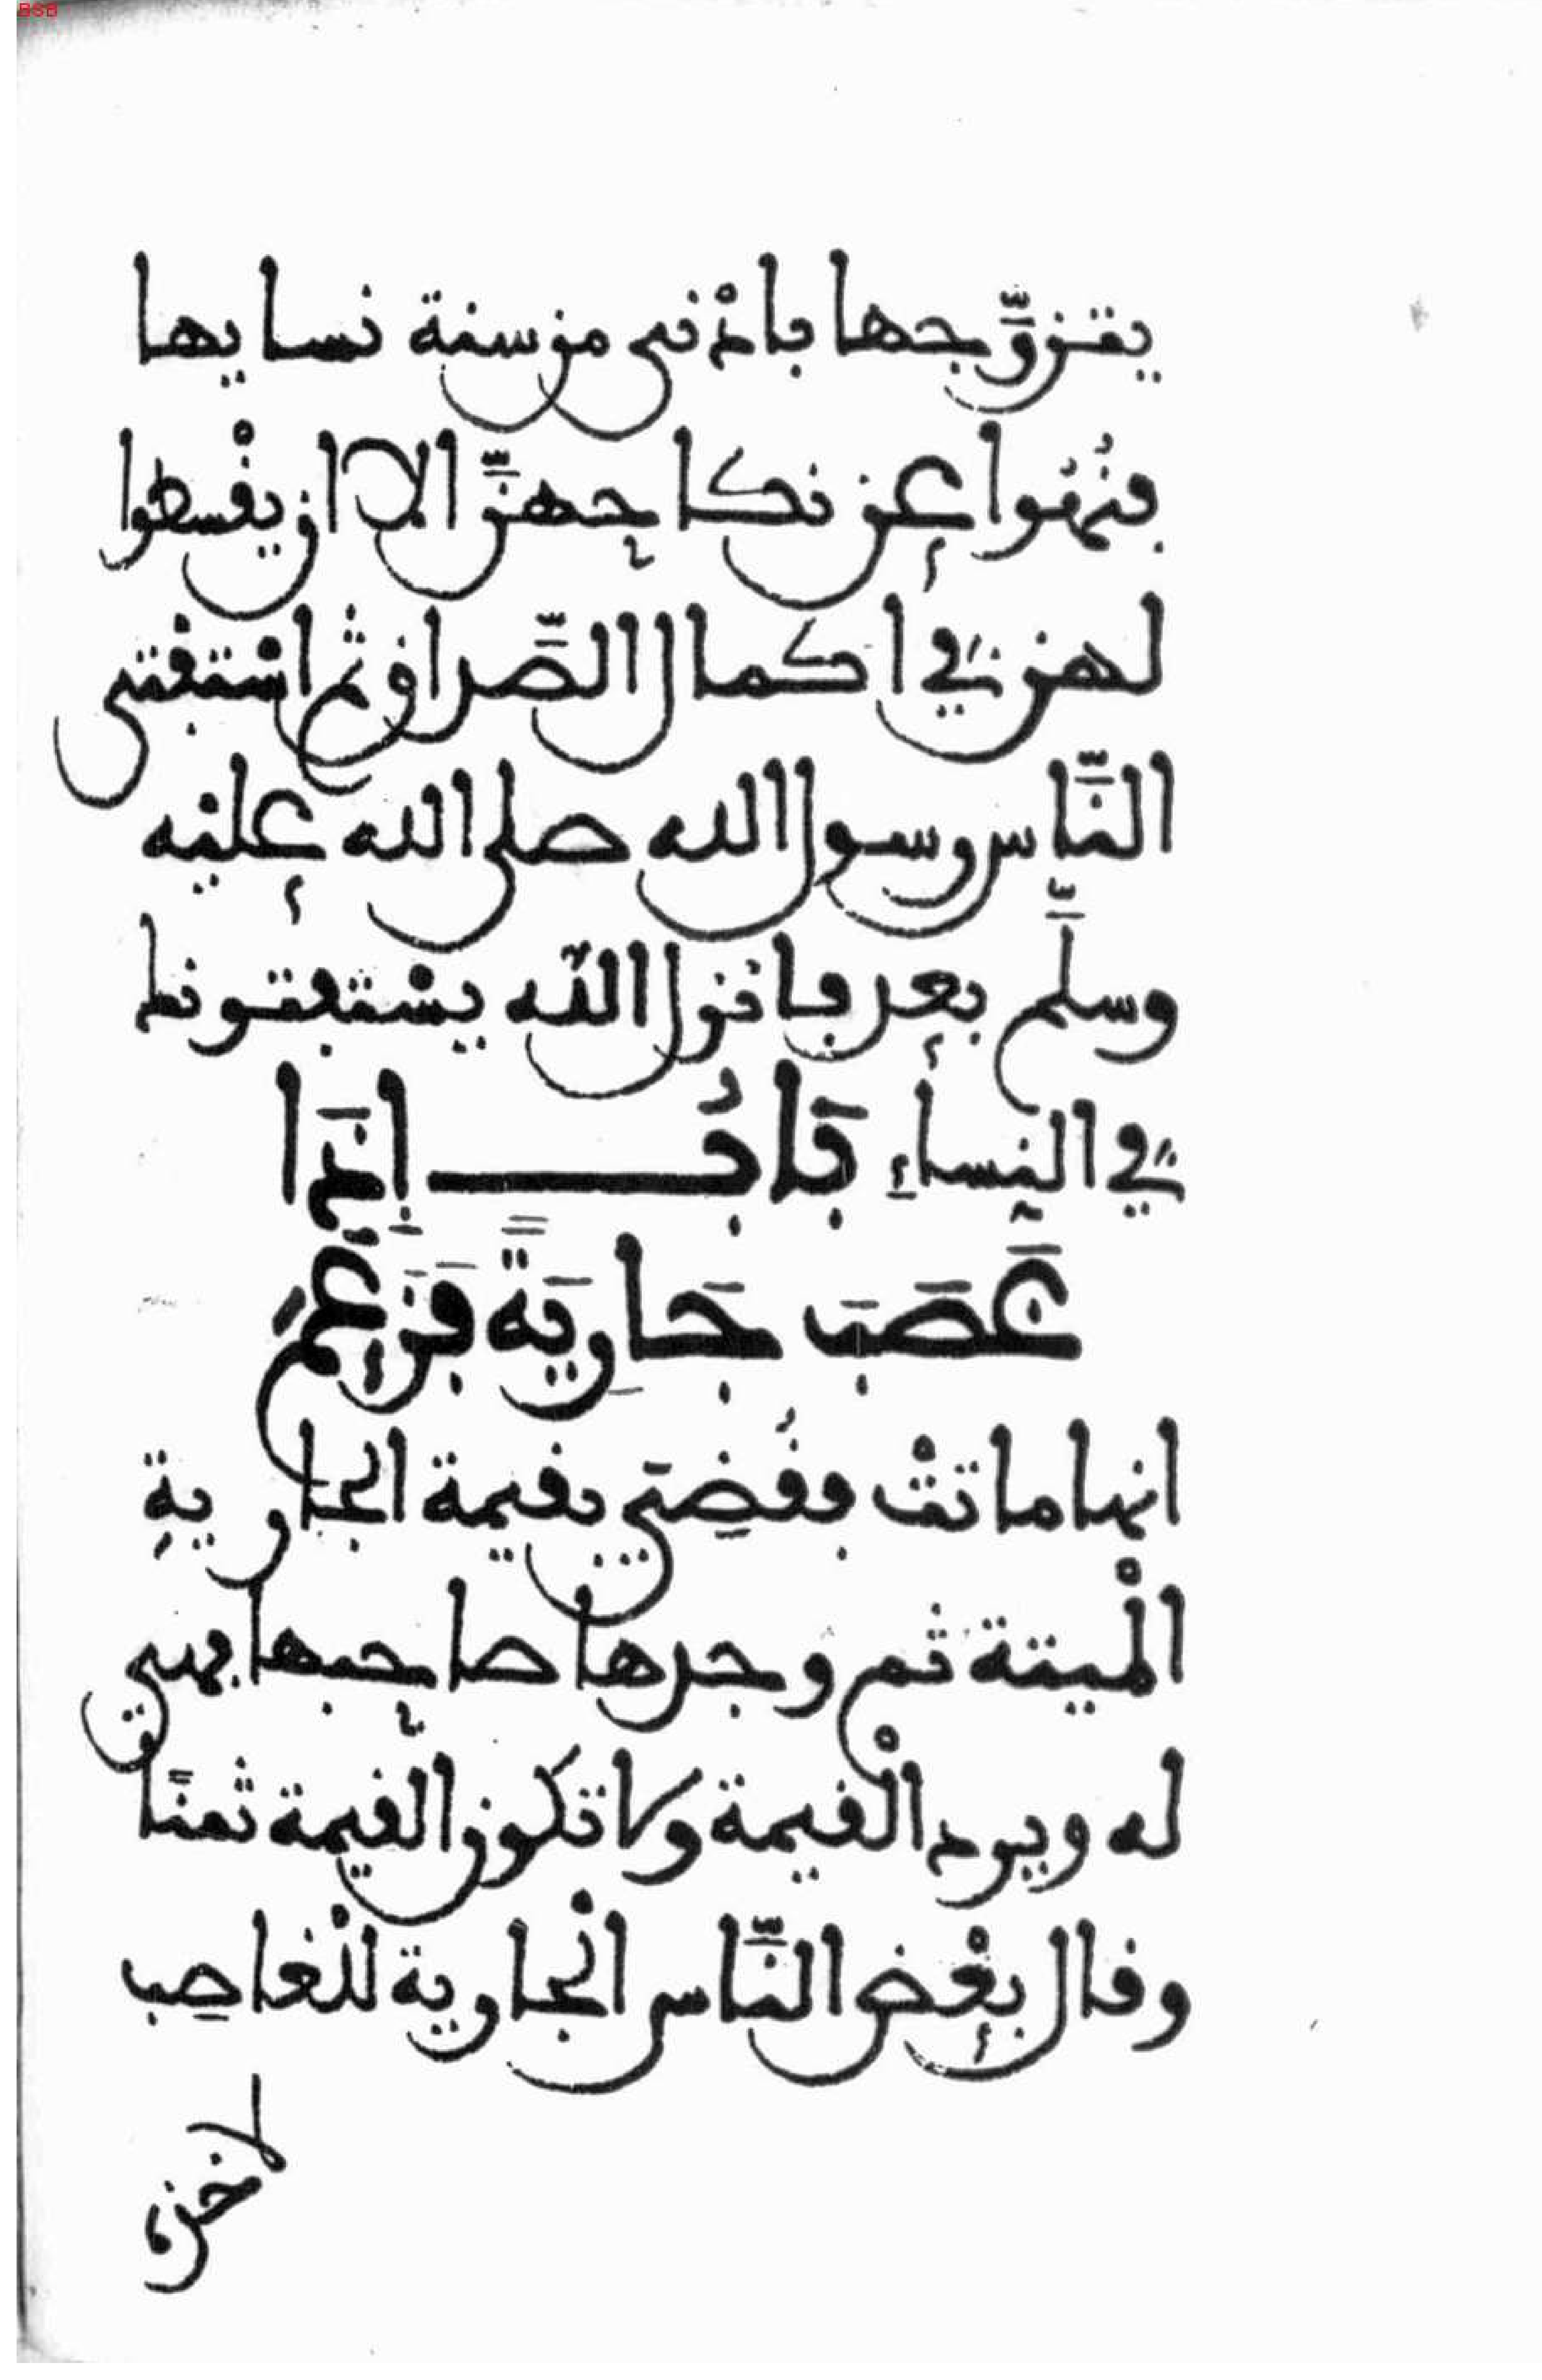 يتزوجها بادْنى من سنة نسايها
فنُهُوا عن نكاحِهنّ الا ان يفْسطوا
لهن في اكمال الصّداق ثم اسْتفتى
النّاس رسول الله صلى الله عليْه
وسلّم بعد فانزل الله يسْتفتونك
في النِّساءِ بَابُ اِذَا
غَصَبَ جَارِيَةً فَزَعَمَ
انها ماتتْ فقُضِيَ بقيمة الجارية
الْميتة ثم وجدها صاحِبها فهي
له ويرد الْقيمة ولا تكون القيمة ثمنًا
وقال بعْض النّاس الْجارية للْغاصِب
لاخذه
BSB